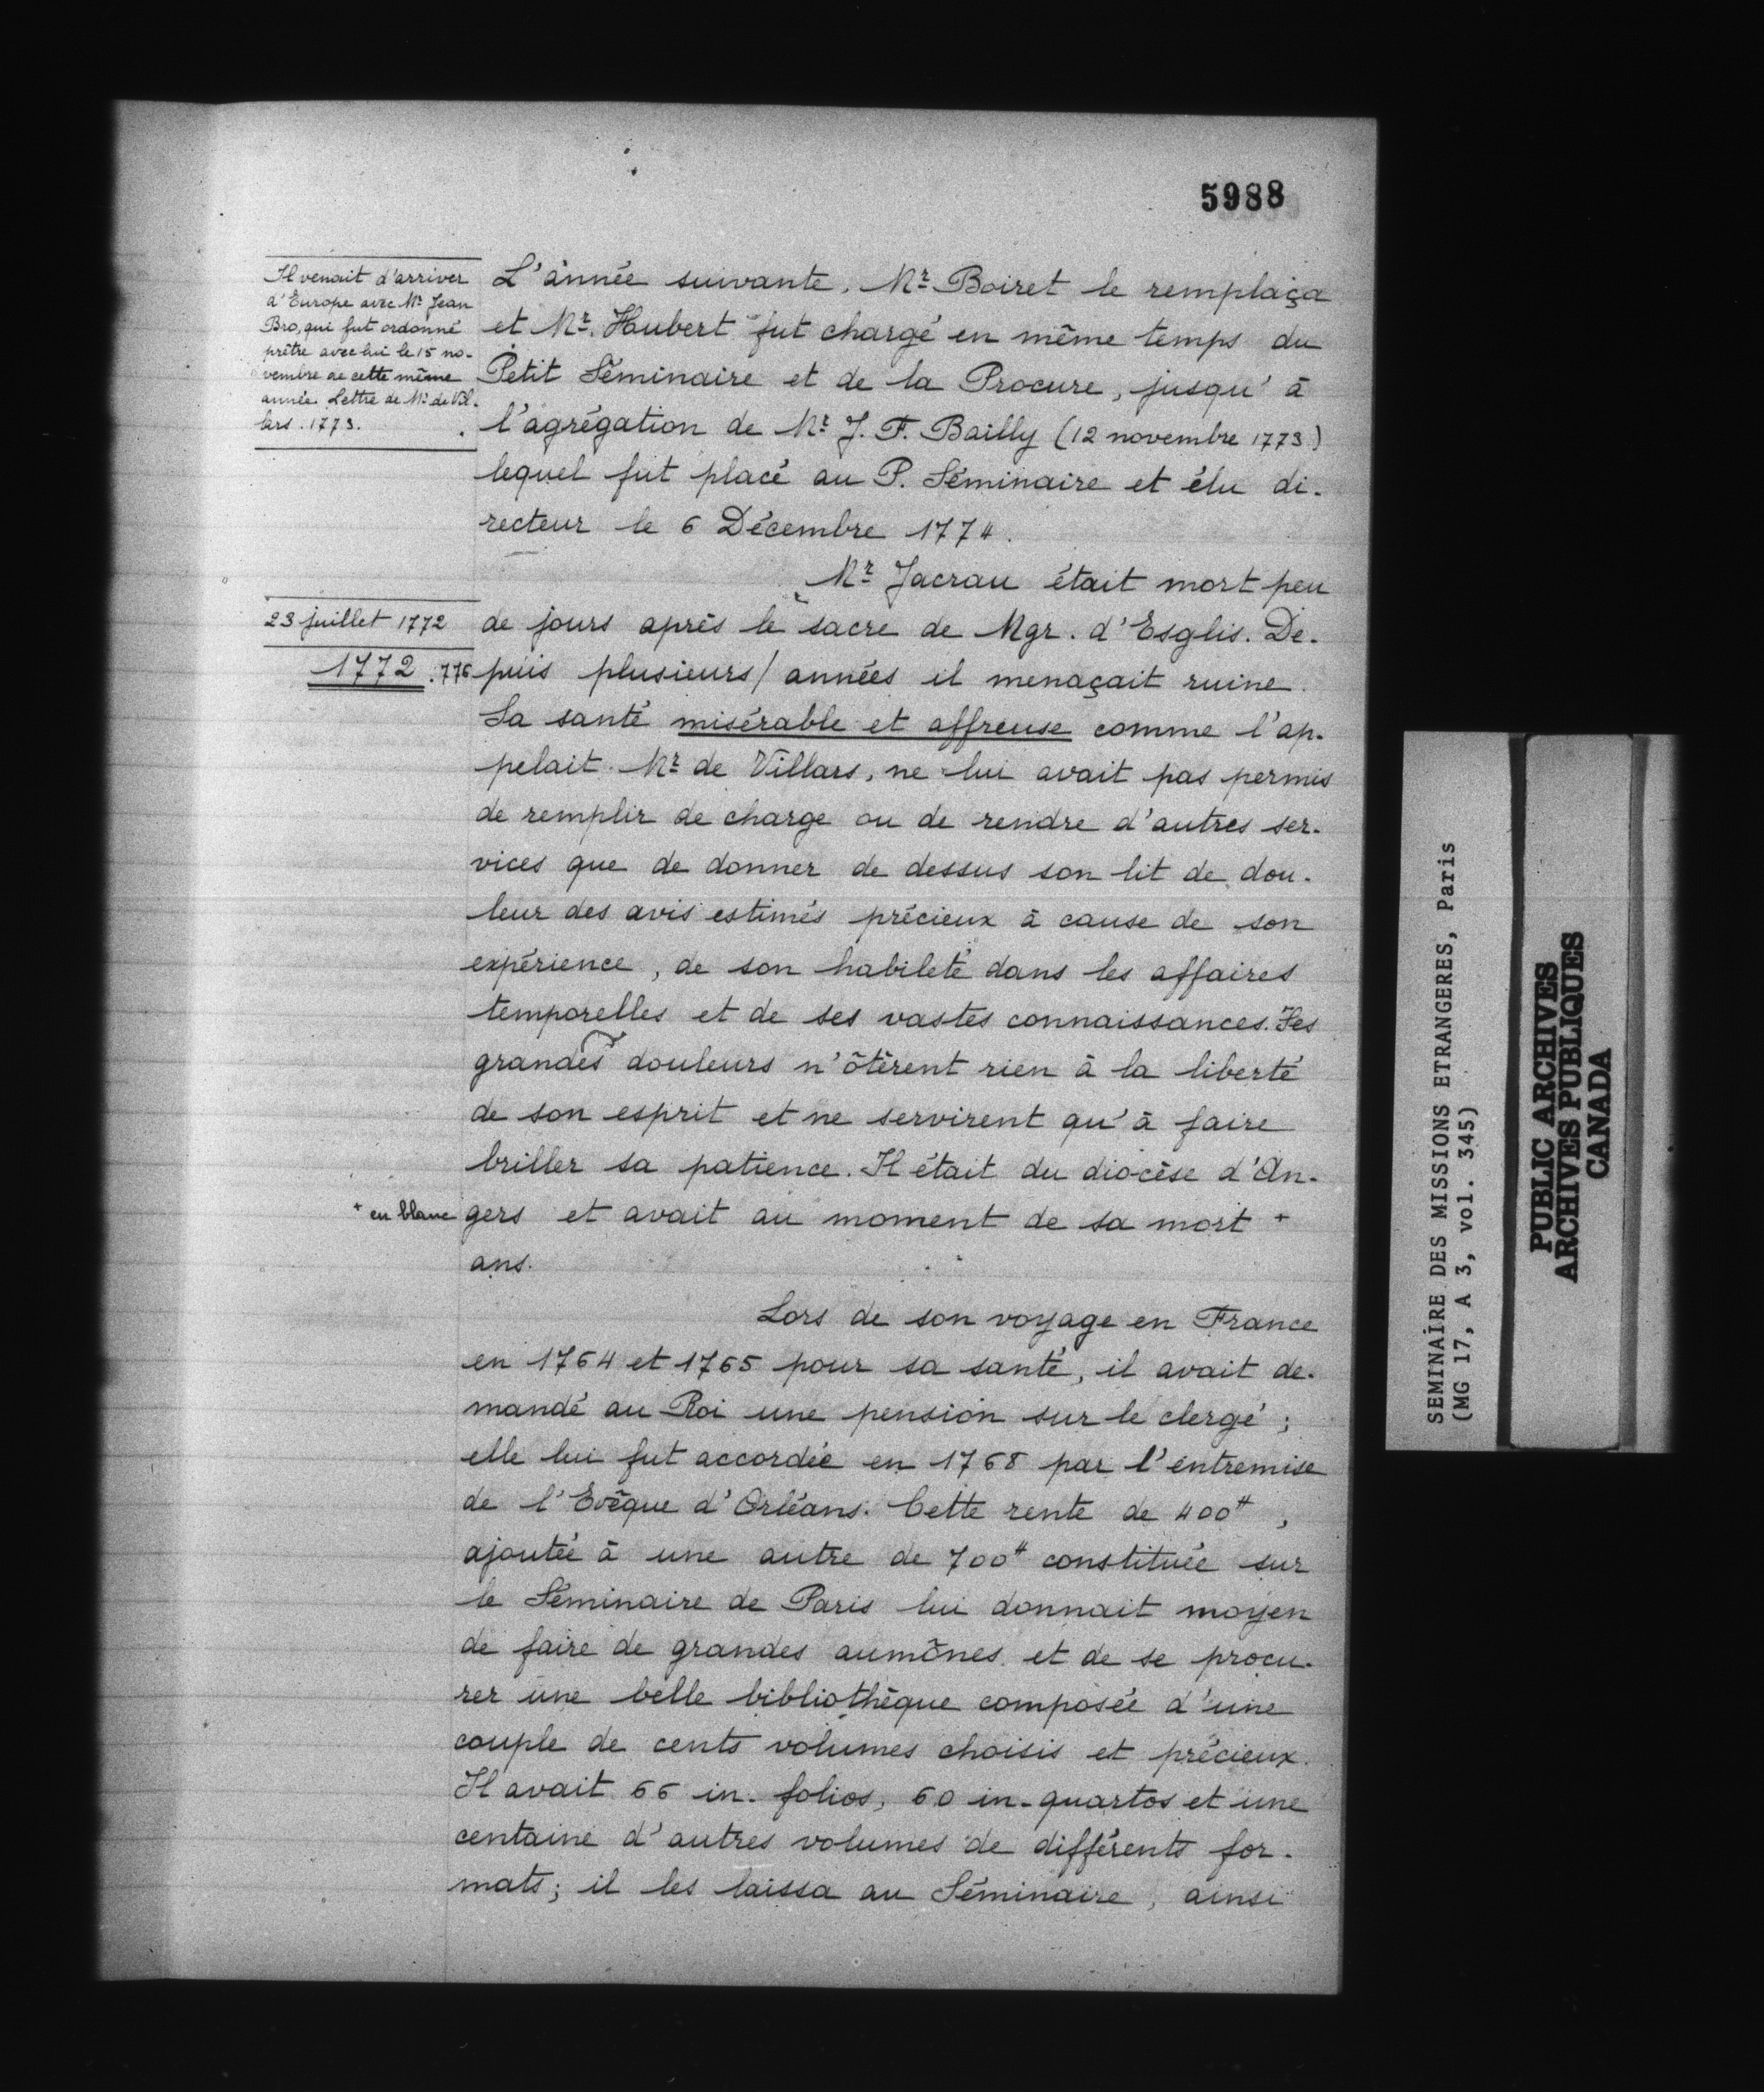 5988
Il venait d'arriver
d'Europe avec Mr Jean
Bro, qui fut ordonné
prêtre avec lui le 15 no-
vembre de cette même
année. Lettre de Mr de Vil-
lars. 1773.
L'année suivante, Mr Boiret le remplaça
et Mr. Hubert fut chargé en même temps du
Petit Séminaire et de la Procure, jusqu'à
l'agrégation de Mr J. F. Bailly (12 novembre 1773)
lequel fut placé au P. Séminaire et élu di-
recteur le 6 Décembre 1774.
Mr Jacrau était mort peu
23 juillet 1772
de jours après le sacre de Mgr. d'Esglis. De-
1772. 776
puis plusieurs / années il menaçait ruine.
Sa santé misérable et affreuse comme l'ap-
pelait Mr de Villars, ne lui avait pas permis
de remplir de charge ou de rendre d'autres ser-
vices que de donner de dessus son lit de dou-
leur des avis estimés précieux à cause de son
expérience, de son habileté dans les affaires
temporelles et de ses vastes connaissances. Ses
grandes douleurs n'ôtèrent rien à la liberté
de son esprit et ne servirent qu'à faire
briller sa patience. Il était du diocèse d'An-
+ en blanc
gers et avait au moment de sa mort +
ans.
Lors de son voyage en France
en 1764 et 1765 pour sa santé, il avait de-
mandé au Roi une pension sur le clergé ;
elle lui fut accordée en 1768 par l'entremise
de l'Evêque d'Orléans. Cette rente de 400#,
ajoutée à une autre de 700# constituée sur
le Séminaire de Paris lui donnait moyen
de faire de grandes aumônes et de se procu-
rer une belle bibliothèque composée d'une
couple de cents volumes choisis et précieux.
Il avait 66 in-folios, 60 in-quartos et une
centaine d'autres volumes de différents for-
mats ; il les laissa au Séminaire, ainsi
SEMINAIRE DES MISSIONS ETRANGERES, Paris
(MG 17, A 3, vol. 345)
PUBLIC ARCHIVES
ARCHIVES PUBLIQUES
CANADA